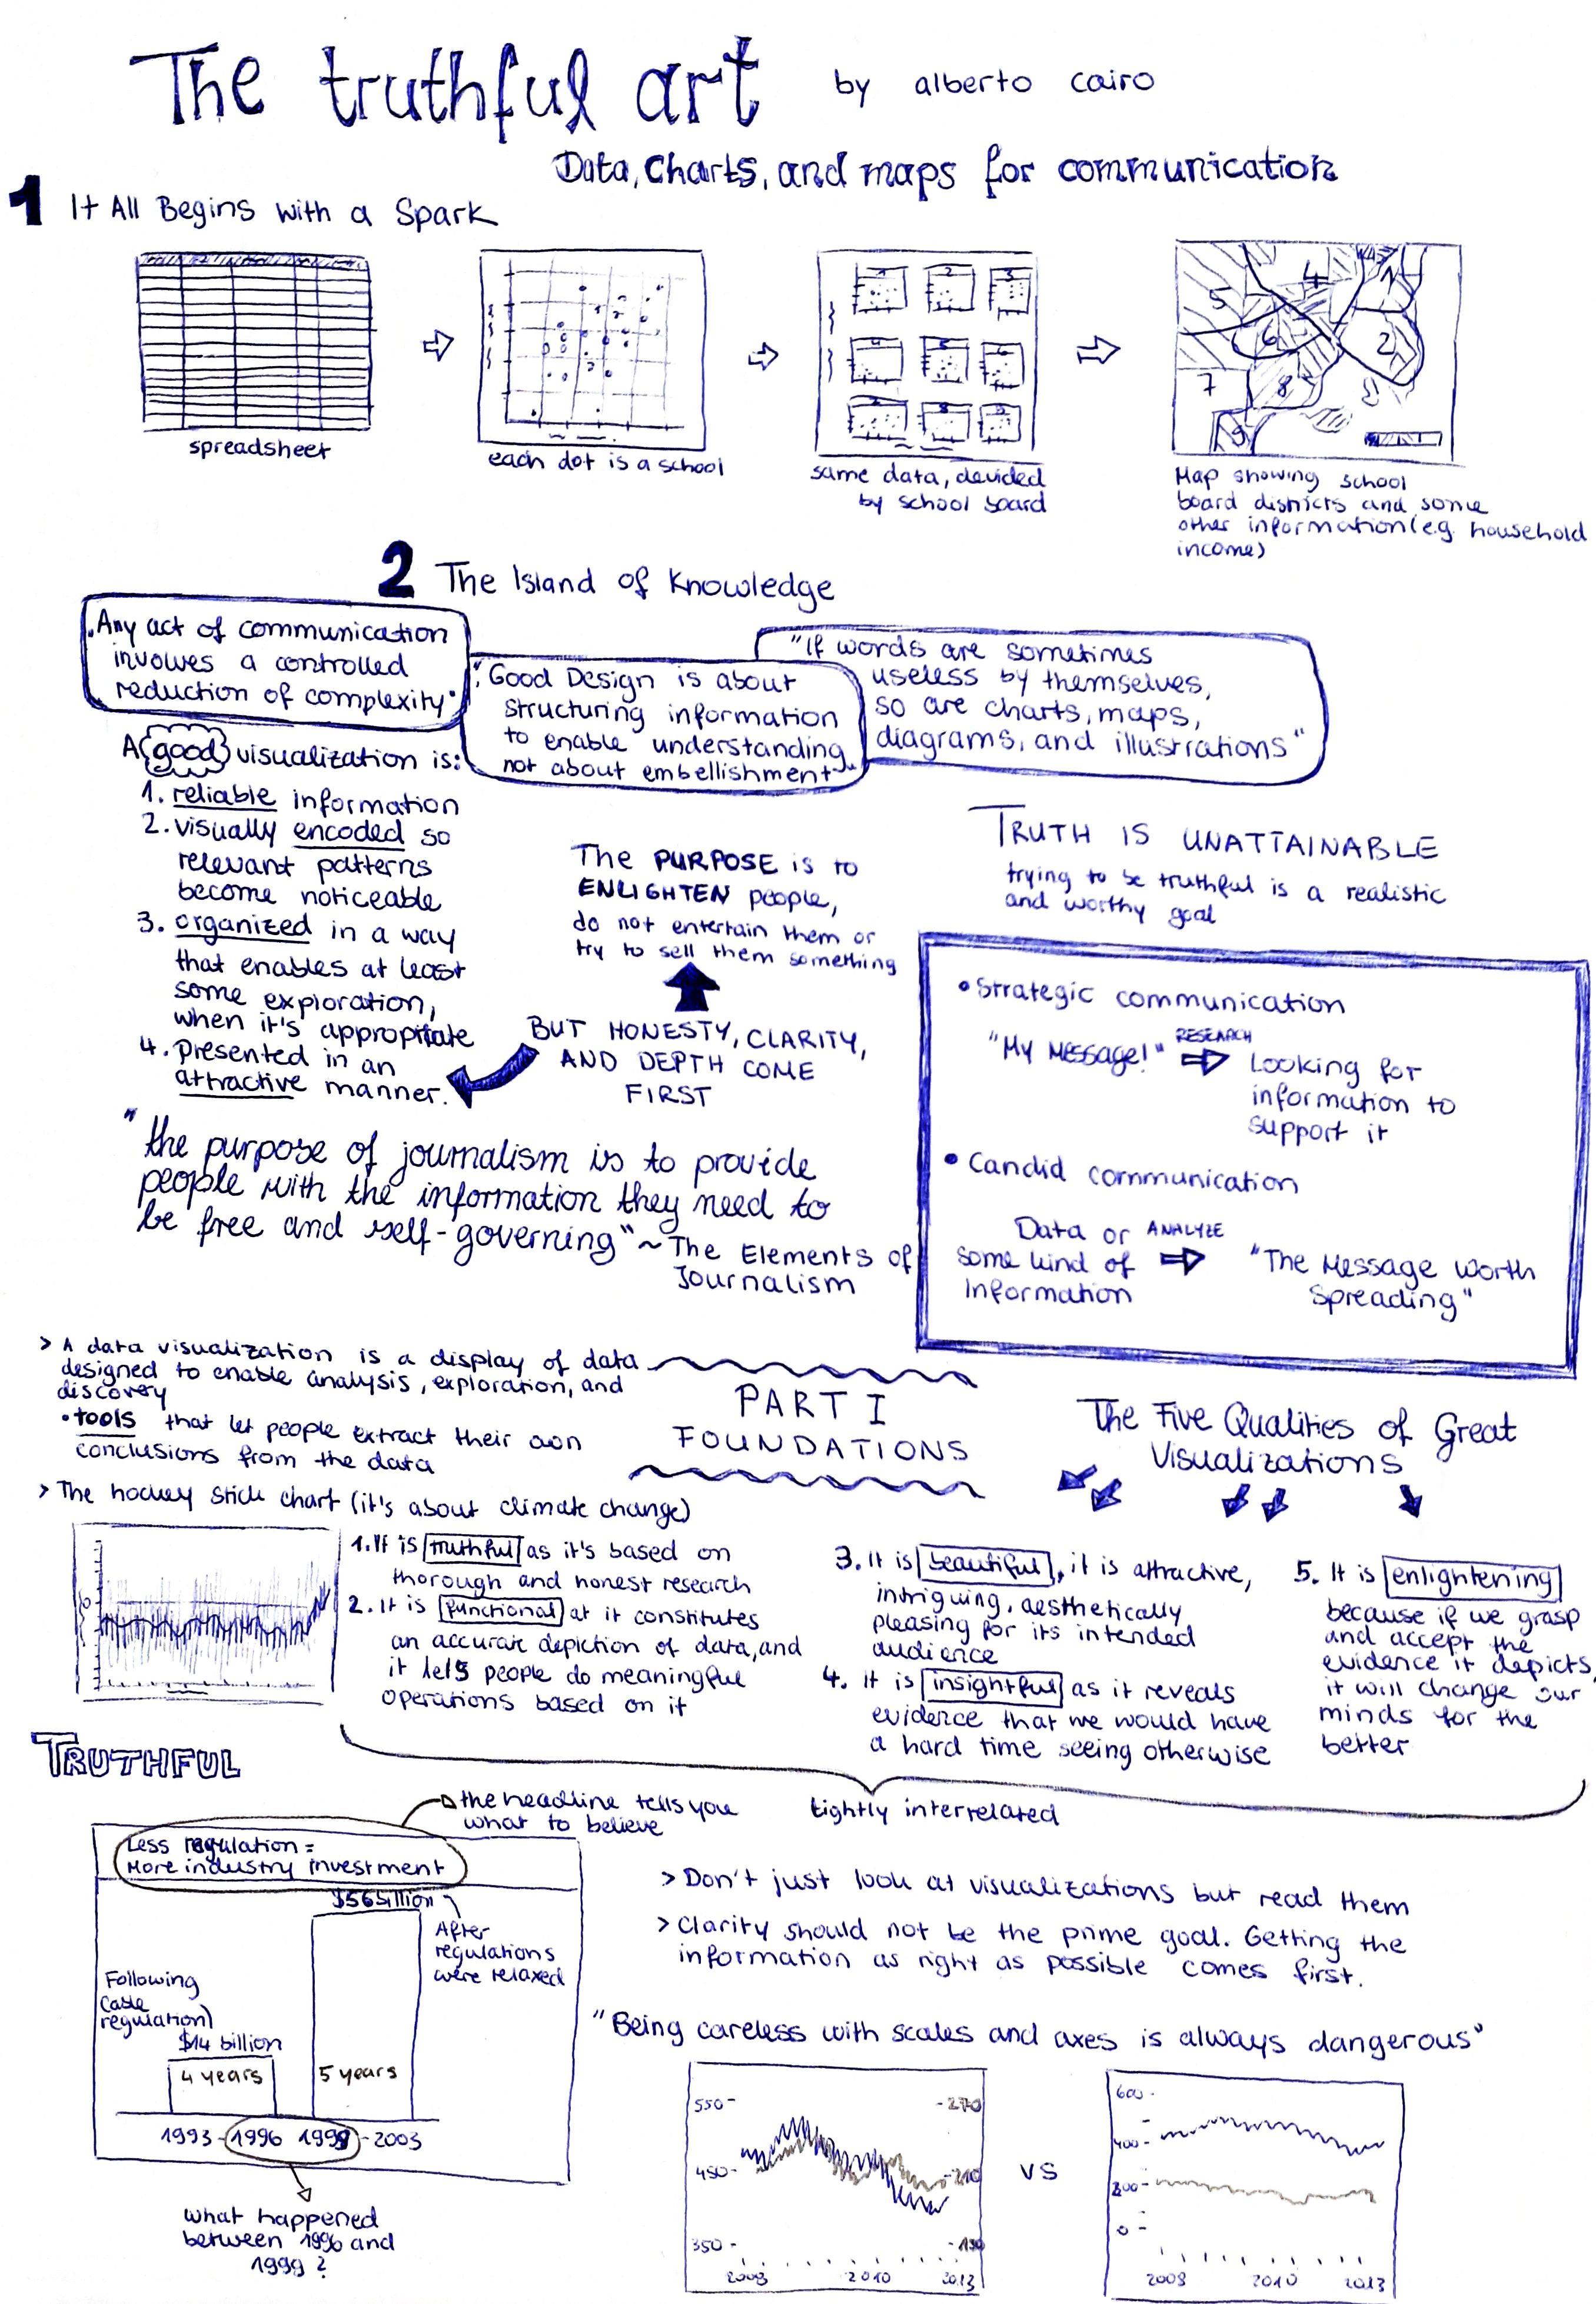 The truthful art by alberto cairo
Data, Charts, and maps for communication
1 It All Begins with a Spark
spreadsheet
each dot is a school
1 2 3
4 5 6
7 8 9
same data, devided
by school board
4 1
5
6 2
7 8
9
Map showing school
board districts and some
other information (e.g. household
income)
2 The Island of Knowledge
"Any act of communication
involves a controlled
reduction of complexity"
"Good Design is about
structuring information
to enable understanding
not about embellishment"
"If words are sometimes
useless by themselves,
so are charts, maps,
diagrams, and illustrations"
A good visualization is:
1. reliable information
2. visually encoded so
relevant patterns
become noticeable
3. organized in a way
that enables at least
some exploration,
when it's appropriate
4. presented in an
attractive manner.
The PURPOSE is to
ENLIGHTEN people,
do not entertain them or
try to sell them something
BUT HONESTY, CLARITY,
AND DEPTH COME
FIRST
TRUTH IS UNATTAINABLE
trying to be truthful is a realistic
and worthy goal
• Strategic communication
"My Message!" RESEARCH
Looking for
information to
support it
• Candid communication
Data or
some kind of
Information
ANALYZE
"The Message worth
Spreading"
"the purpose of journalism is to provide
people with the information they need to
be free and self-governing" ~ The Elements of
Journalism
> A data visualization is a display of data
designed to enable analysis, exploration, and
discovery
• tools that let people extract their own
conclusions from the data
PART I
FOUNDATIONS
The Five Qualities of Great
Visualizations
> The hockey stick chart (it's about climate change)
1. It is truthful as it's based on
thorough and honest research
2. It is functional at it constitutes
an accurate depiction of data, and
it lets people do meaningful
operations based on it
3. It is beautiful, it is attractive,
intriguing, aesthetically
pleasing for its intended
audience
4. It is insightful as it reveals
evidence that we would have
a hard time seeing otherwise
5. It is enlightening
because if we grasp
and accept the
evidence it depicts,
it will change our
minds for the
better
tightly interrelated
TRUTHFUL
the headline tells you
what to believe
Less regulation =
More industry investment
$56 billion
After
regulations
were relaxed
Following
Cable
regulation
$14 billion
4 years
5 years
1993-1996 1999-2003
what happened
between 1996 and
1999?
> Don't just look at visualizations but read them
> Clarity should not be the prime goal. Getting the
information as right as possible comes first.
"Being careless with scales and axes is always dangerous"
550 - - 270
450 - - 210
350 -
2008 2010 2013
VS
600 -
400 -
200 -
0 -
2008 2010 2013